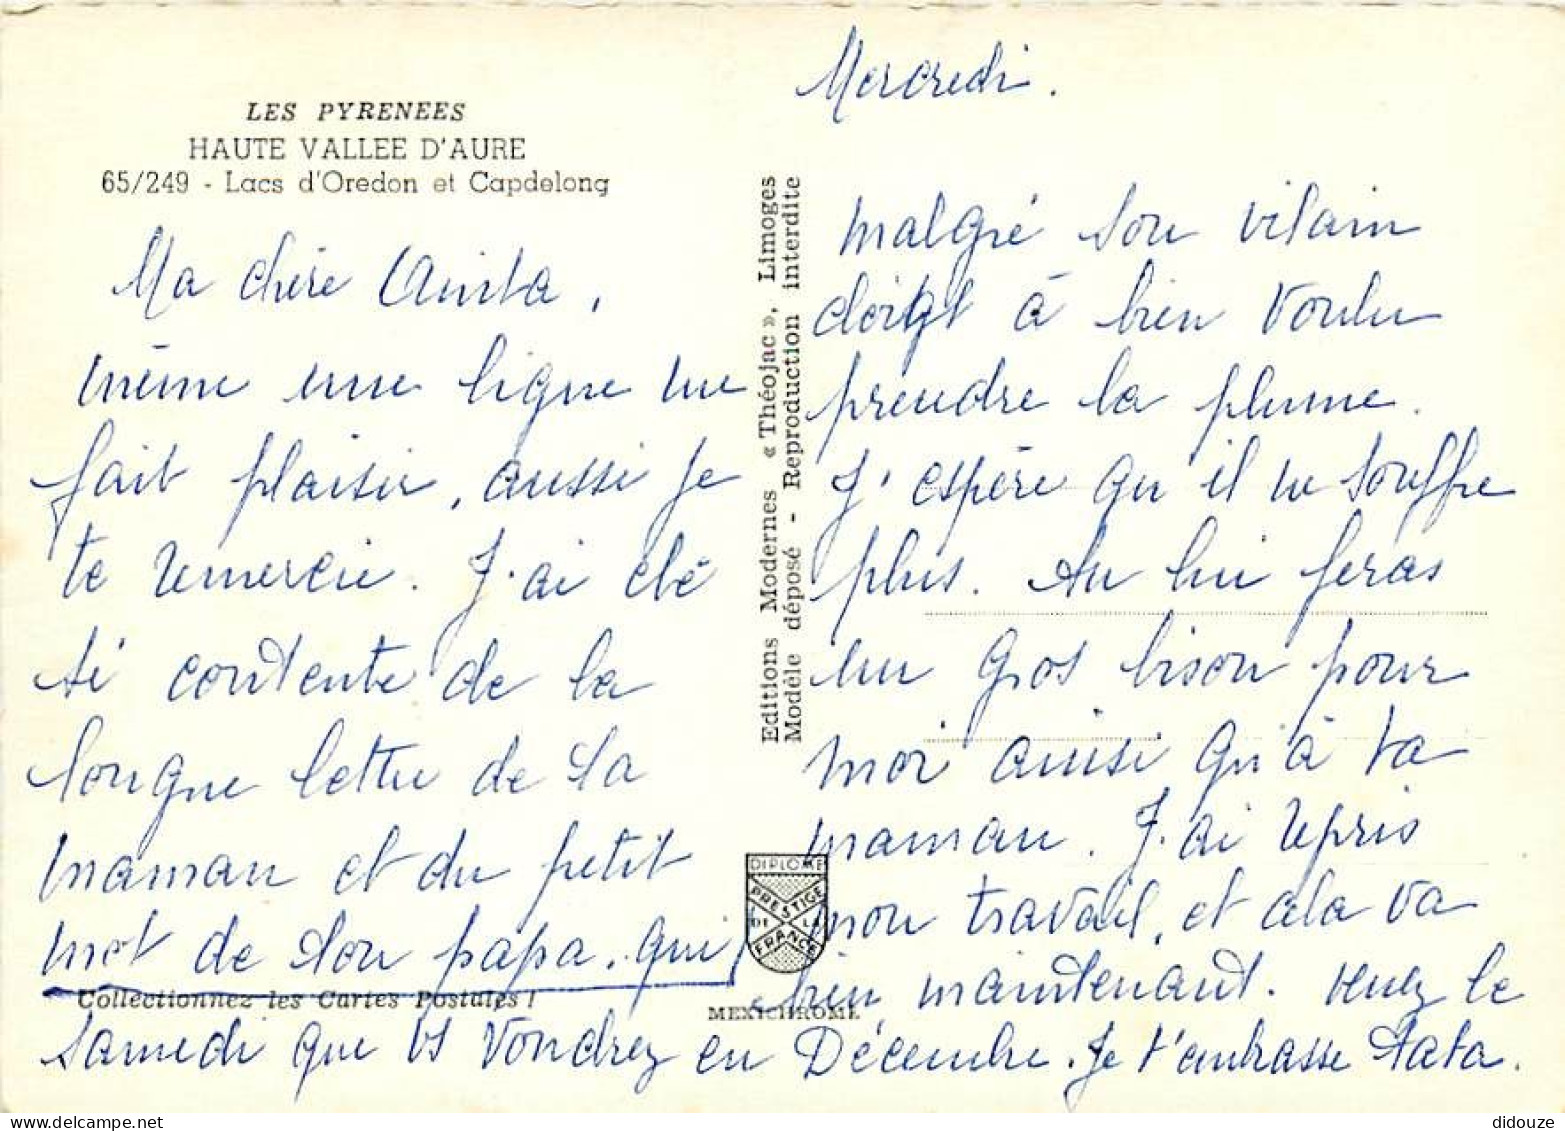 LES PYRENEES
HAUTE VALLEE D'AURE
65/249 - Lacs d'Oredon et Capdelong
Ma chère Anita,
même une ligne me
fait plaisir, aussi je
te remercie. J'ai été
si contente de la
longue lettre de ta
maman et du petit
mot de ton papa. qui
Collectionnez les Cartes Postales !
Editions Modernes « Théojac », Limoges
Modèle déposé - Reproduction interdite
DIPLOME
PRESTIGE
DE LA
FRANCE
MEXICHROME
Mercredi.
malgré son vilain
doigt à bien voulu
prendre la plume.
J'espère qu'il ne souffre
plus. Tu lui feras
un gros bison pour
moi ainsi qu'à ta
maman. J'ai repris
mon travail, et cela va
bien maintenant. Venez le
samedi que vs voudrez en Décembre. Je t'embrasse Tata.
didouze